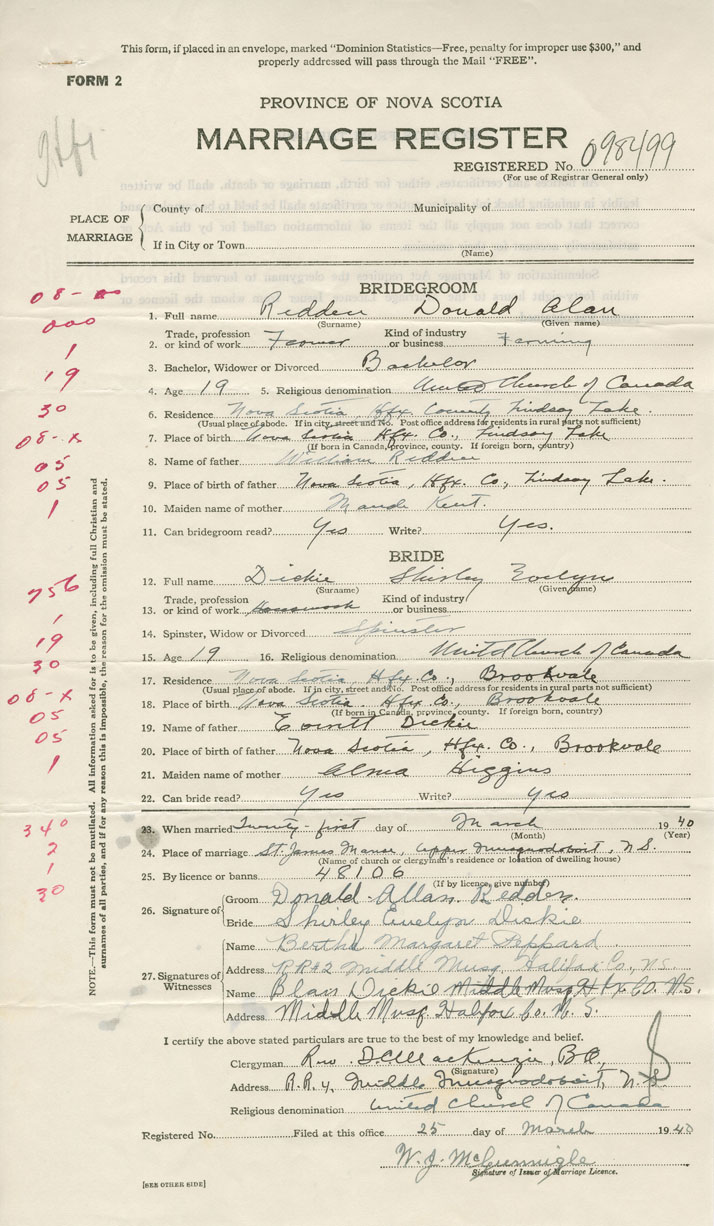 This form, if placed in an envelope, marked "Dominion Statistics—Free, penalty for improper use $300," and
properly addressed will pass through the Mail "FREE".
FORM 2
PROVINCE OF NOVA SCOTIA
MARRIAGE REGISTER
REGISTERED No. 098499
(For use of Registrar General only)
PLACE OF MARRIAGE
County of Municipality of
If in City or Town
(Name)
BRIDEGROOM
1. Full name Redden Donald Alan
(Surname) (Given name)
2. Trade, profession or kind of work Farmer Kind of industry or business Farming
3. Bachelor, Widower or Divorced Bachelor
4. Age 19 5. Religious denomination United Church of Canada
6. Residence Nova Scotia, Hfx. County, Lindsay Lake.
(Usual place of abode. If in city, street and No. Post office address for residents in rural parts not sufficient)
7. Place of birth Nova Scotia Hfx. Co., Lindsay Lake
(If born in Canada, province, county. If foreign born, country)
8. Name of father William Redden
9. Place of birth of father Nova Scotia, Hfx. Co., Lindsay Lake.
10. Maiden name of mother Maude Kent.
11. Can bridegroom read? Yes Write? Yes.
BRIDE
12. Full name Dickie Shirley Evelyn
(Surname) (Given name)
13. Trade, profession or kind of work Housework Kind of industry or business
14. Spinster, Widow or Divorced Spinster
15. Age 19 16. Religious denomination United Church of Canada
17. Residence Nova Scotia, Hfx. Co., Brookvale
(Usual place of abode. If in city, street and No. Post office address for residents in rural parts not sufficient)
18. Place of birth Nova Scotia. Hfx. Co., Brookvale
(If born in Canada, province, county. If foreign born, country)
19. Name of father Everett Dickie
20. Place of birth of father Nova Scotia, Hfx. Co., Brookvale
21. Maiden name of mother Alma Higgins
22. Can bride read? Yes Write? Yes
23. When married Twenty-first day of March 1940
(Month) (Year)
24. Place of marriage St. James Manse, Upper Musquodoboit, N.S.
(Name of church or clergyman's residence or location of dwelling house)
25. By licence or banns 48106
(If by licence, give number)
26. Signature of
Groom Donald Allan Redden
Bride Shirley Evelyn Dickie
27. Signatures of Witnesses
Name Bertha Margaret Peppard
Address R R #2 Middle Musq. Halifax Co., N.S.
Name Blair Dickie Middle Musq Hfx. Co. N.S.
Address Middle Musq. Halifax Co. N. S.
I certify the above stated particulars are true to the best of my knowledge and belief.
Clergyman Rev. D. MacKenzie, B.A.,
(Signature)
Address R.R. 4, Middle Musquodoboit, N.S
Religious denomination United Church of Canada
Registered No. Filed at this office 25 day of March 1940
W. J. McGunnigle
Signature of Issuer of Marriage Licence.
[SEE OTHER SIDE]
NOTE.—This form must not be mutilated. All information asked for is to be given, including full Christian and
surnames of all parties, and if for any reason this is impossible, the reason for the omission must be stated.
08-
000
1
19
30
08-x
05
05
1
756
1
19
30
08-x
05
05
1
340
2
1
30